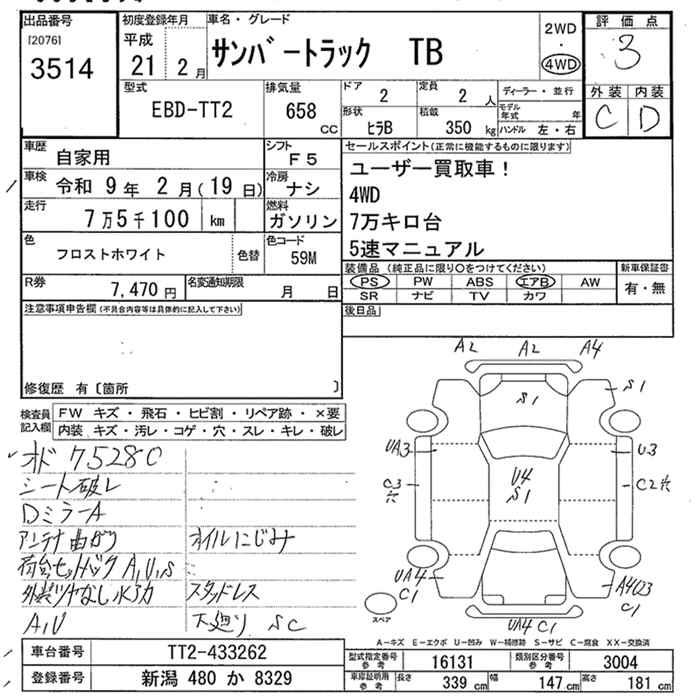 出品番号
[2076]
3514
初度登録年月
平成
21 2月
車名・グレード
サンバートラック TB
2WD
・
4WD
評価点
3
外装 内装
C D
型式
EBD-TT2
排気量
658
CC
ドア
2
定員
2 人
形状
ヒラB
積載
350 kg
ディーラー・並行
モデル年式 年
ハンドル 左・右
車歴
自家用
シフト
F5
車検
令和 9年 2月(19日)
冷房
ナシ
走行
7万5千100 km
燃料
ガソリン
色
フロストホワイト
色替
色コード
59M
R券
7,470円
名変通知期限
月 日
セールスポイント(正常に機能するものに限ります)
ユーザー買取車！
4WD
7万キロ台
5速マニュアル
装備品 (純正品に限り○をつけてください)
新車保証書
PS PW ABS エアB AW
SR ナビ TV カワ
有・無
後日品
注意事項申告欄(不具合内容等は具体的に記入して下さい)
修復歴 有〔箇所 〕
検査員記入欄
FW キズ・飛石・ヒビ割・リペア跡・×要
内装 キズ・汚レ・コゲ・穴・スレ・キレ・破レ
シート破レ
DミラーA
アンテナ曲がり
オイルにじみ
スタッドレス
A,U
下廻り SC
A2 A2 A4
S1
S1
UA3
U3
C3
穴
U4
S1
C2穴
UA4
C1
C1
UA4 C1
スペア
A-キズ E-エクボ U-凹み W-補修跡 S-サビ C-腐食 XX-交換済
車台番号
TT2-433262
登録番号
新潟 480 か 8329
型式指定番号
参考
16131
類別区分番号
参考
3004
車庫証明用
参考
長さ
339 cm
幅
147 cm
高さ
181 cm